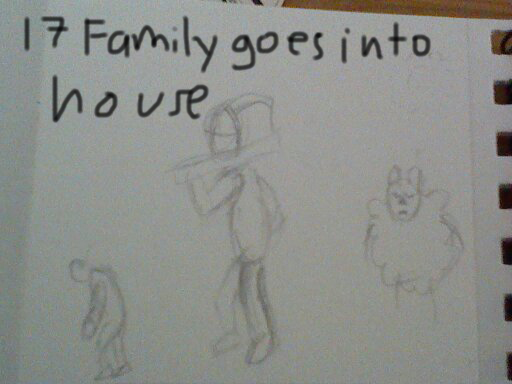 17 Family goes into
house